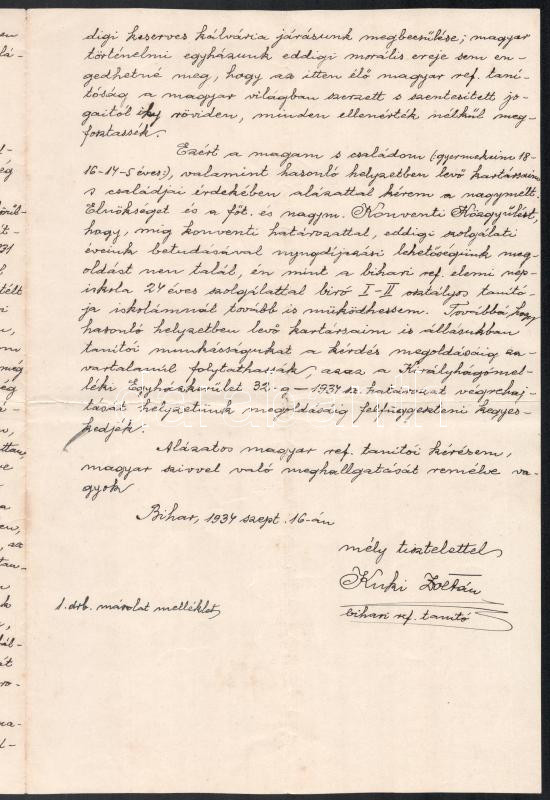 digi keserves kálvária járásunk megbecsülése; magyar
történelmi egyházunk eddigi morális ereje sem en-
gedhetné meg, hogy az itten élő magyar ref. tani-
tóság a magyar világban szerzett s szentesített jo-
gaitól így röviden, minden ellenérték nélkül meg-
fosztassék.
Ezért a magam s családom (gyermekeim 18-
16-14-5 éves:), valamint hasonló helyzetben levő kartársaim
s családjai érdekében alázattal kérem a nagymélt.
Elnökséget és a főt. és nagym. Konventi Közgyűlést,
hogy, mig konventi határozattal, eddigi szolgálati
éveink betudásával nyugdíjazási lehetőségünk meg-
oldást nem talál, én mint a bihari ref. elemi nép-
iskola 24 éves szolgálattal biró I-II osztályos tanitó-
ja iskolámnál tovább is működhessem. Továbbá, hogy
hasonló helyzetben levő kartársaim is állásukban
tanitói munkásságukat a kérdés megoldásáig za-
vartalanúl folytathassák, azaz a Királyhágómel-
léki Egyházkerület 32. a-1934 sz határozat végrehaj-
tását helyzetünk megoldásáig felfüggeszteni kegyes-
kedjék.
Alázatos magyar ref. tanitói kérésem,
magyar szivvel való meghallgatását remélve va-
gyok
Bihar, 1934 szept. 16-án
mély tisztelettel
Kuki Zoltán
bihari ref. tanitó
1. drb. másolat melléklet,